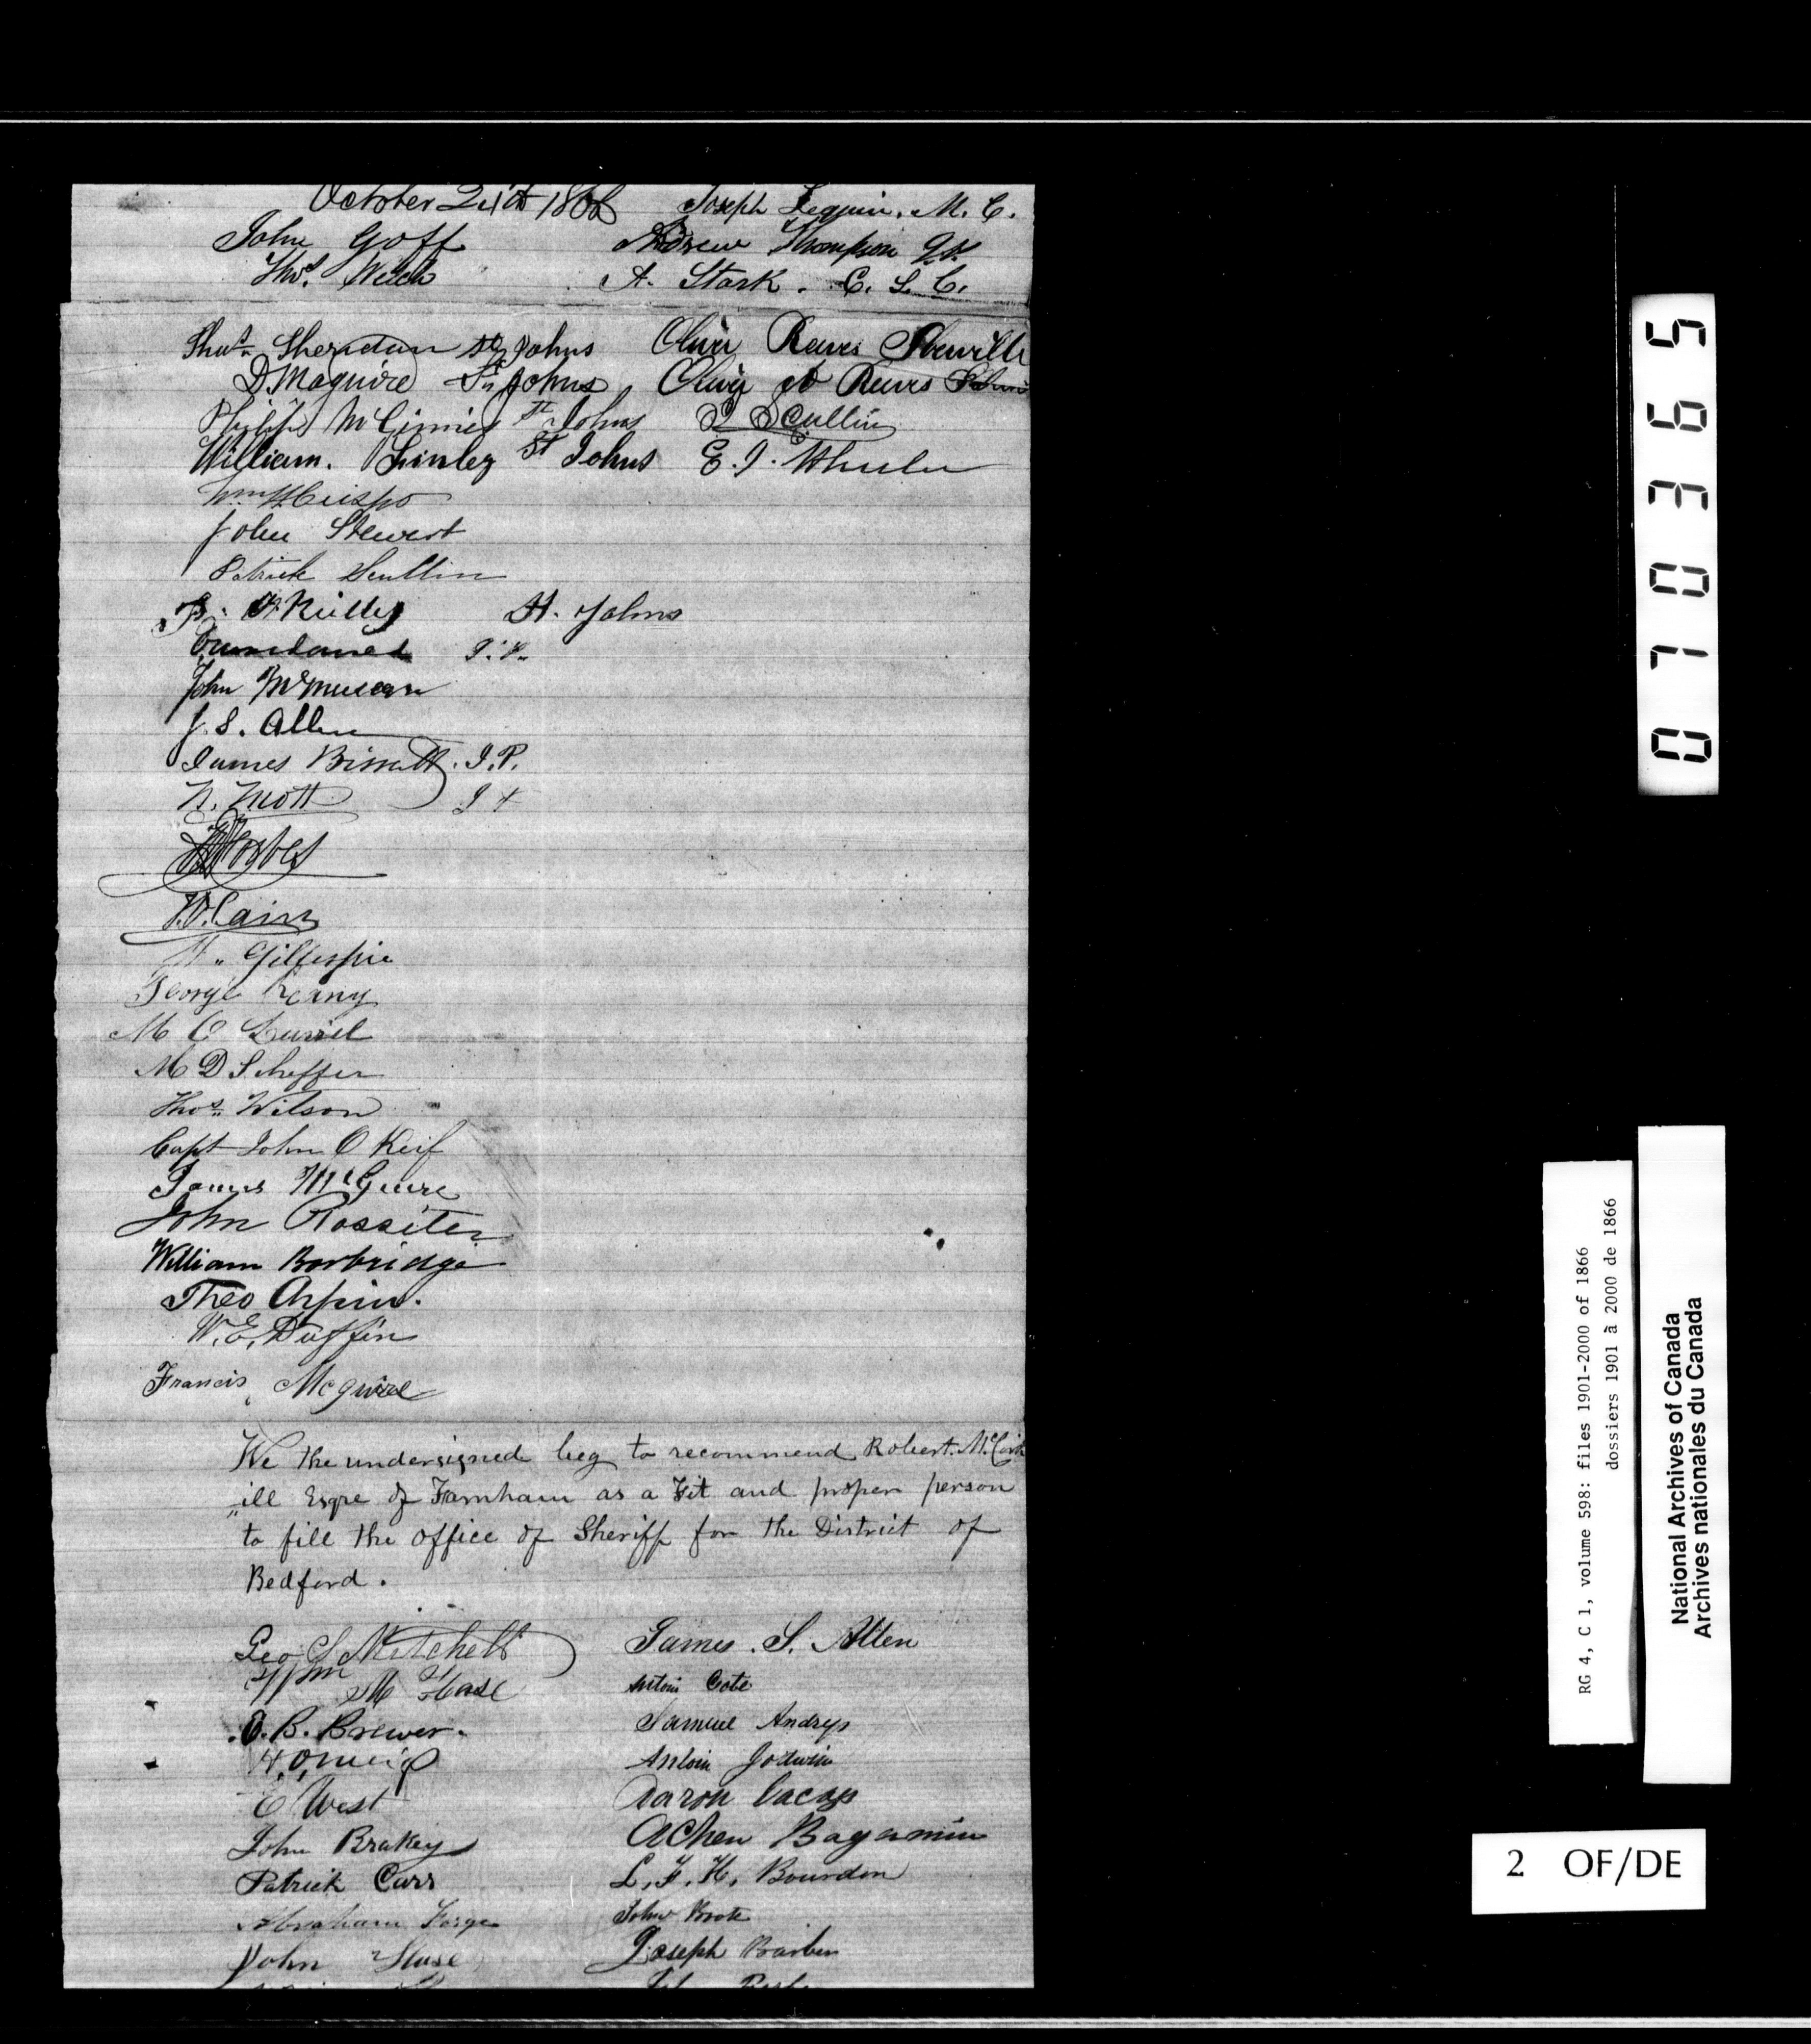 October 24th 1866 Joseph M. C.
John Goff Andrew Thompson
Thos. Welch A. Stark. C. S. C.
Thos. Sheridan St Johns Oliver Reeves
D. Maguire St Johns Reeves
Philip McGinnis St Johns Scullin
William. Finley St Johns E. J. Wheeler
Wm H Crispo
John Stewart
Patrick Scullin
O'Reilly St. Johns
John
J. S. Allen
James Bissett. J.P.
N. Mott
Forbes
Cain
Gillespie
George Reany
M C
M D Scheffer
Thos. Wilson
Capt John O Keif
James McGuire
John Rossiter
William Borbridge
Theo Arpin.
W. E. Duffin
Francis Mcguire
We the undersigned beg to recommend Robert. McCork
"ill Esqre of Farnham as a Fit and proper person
to fill the office of Sheriff for the District of
Bedford.
Geo Mitchell James. S. Allen
Wm M Hase Antoin Cote
E. B. Brewer. Samuel Andrys
Antoin Jodwin
E West Aaron
John Brakey Achew Bagamin
Patrick Carr L. F. H. Bourdon
Abraham Forge John
John Hase Joseph Barber
0 7 0 3 6 5
RG 4, C 1, volume 598: files 1901-2000 of 1866
dossiers 1901 à 2000 de 1866
National Archives of Canada
Archives nationales du Canada
2 OF/DE